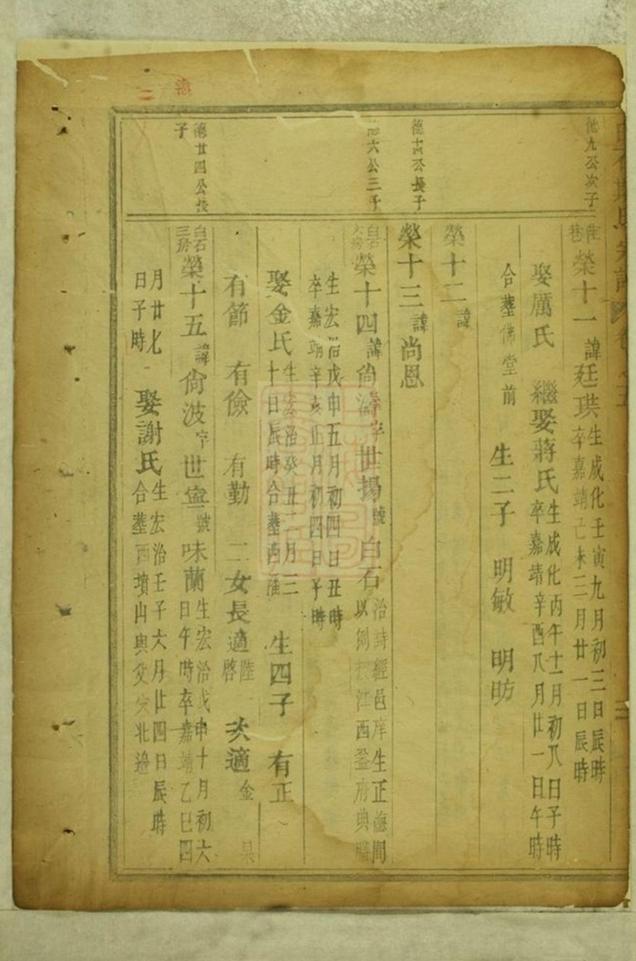 德九公次子
巷
榮十一諱廷珙生成化壬寅九月初三日辰時卒嘉靖己未三月廿一日辰時
娶厲氏 繼娶蔣氏生成化丙午十一月初八日子時卒嘉靖辛酉八月廿一日午時
合墓佛堂前 生二子 明敏 明昉
榮十二諱
德十公長子
榮十三諱尚恩
六公三子
白石
榮十四諱尚 字世揚號白石治詩經邑庠生正德間以例授江西益府典膳
生宏治戊申五月初四日丑時卒嘉靖辛亥正月初四日子時
娶金氏生宏治癸丑二月三十日辰時合墓西 生四子 有正
有節 有儉 有勤 二女長適陸啓 次適金杲
德廿四公長子
白石三房
榮十五諱尚波字世寧號味蘭生宏治戊申十月初六日午時卒嘉靖乙巳四
月廿七日子時 娶謝氏生宏治壬子六月廿四日辰時合墓西墳山與父 北邊